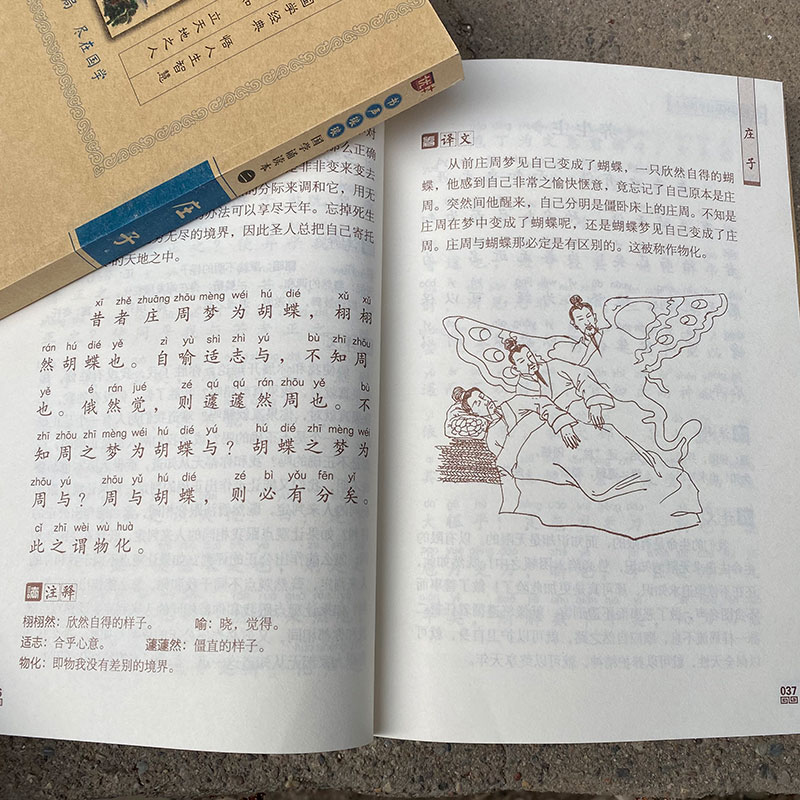 尽在国学
国学经典
悟人生智慧
立天地之人
书声琅琅
国学诵读本
二
庄子
对
么正确
是非非变来变去
的分际来调和它，用无
办法可以享尽天年。忘掉死生
无尽的境界，因此圣人总把自己寄托
的天地之中。
xī zhě zhuāng zhōu mèng wéi hú dié xǔ xǔ
昔者庄周梦为胡蝶，栩栩
rán hú dié yě zì yù shì zhì yú bù zhī zhōu
然胡蝶也。自喻适志与，不知周
yě é rán jué zé qú qú rán zhōu yě bù
也。俄然觉，则蘧蘧然周也。不
zhī zhōu zhī mèng wéi hú dié yú hú dié zhī mèng wéi
知周之梦为胡蝶与？胡蝶之梦为
zhōu yú zhōu yǔ hú dié zé bì yǒu fēn yǐ
周与？周与胡蝶，则必有分矣。
cǐ zhī wèi wù huà
此之谓物化。
注释
栩栩然：欣然自得的样子。 喻：晓，觉得。
适志：合乎心意。 蘧蘧然：僵直的样子。
物化：即物我没有差别的境界。
庄子
译文
从前庄周梦见自己变成了蝴蝶，一只欣然自得的蝴
蝶，他感到自己非常之愉快惬意，竟忘记了自己原本是庄
周。突然间他醒来，自己分明是僵卧床上的庄周。不知是
庄周在梦中变成了蝴蝶呢，还是蝴蝶梦见自己变成了庄
周。庄周与蝴蝶那必定是有区别的。这被称作物化。
037